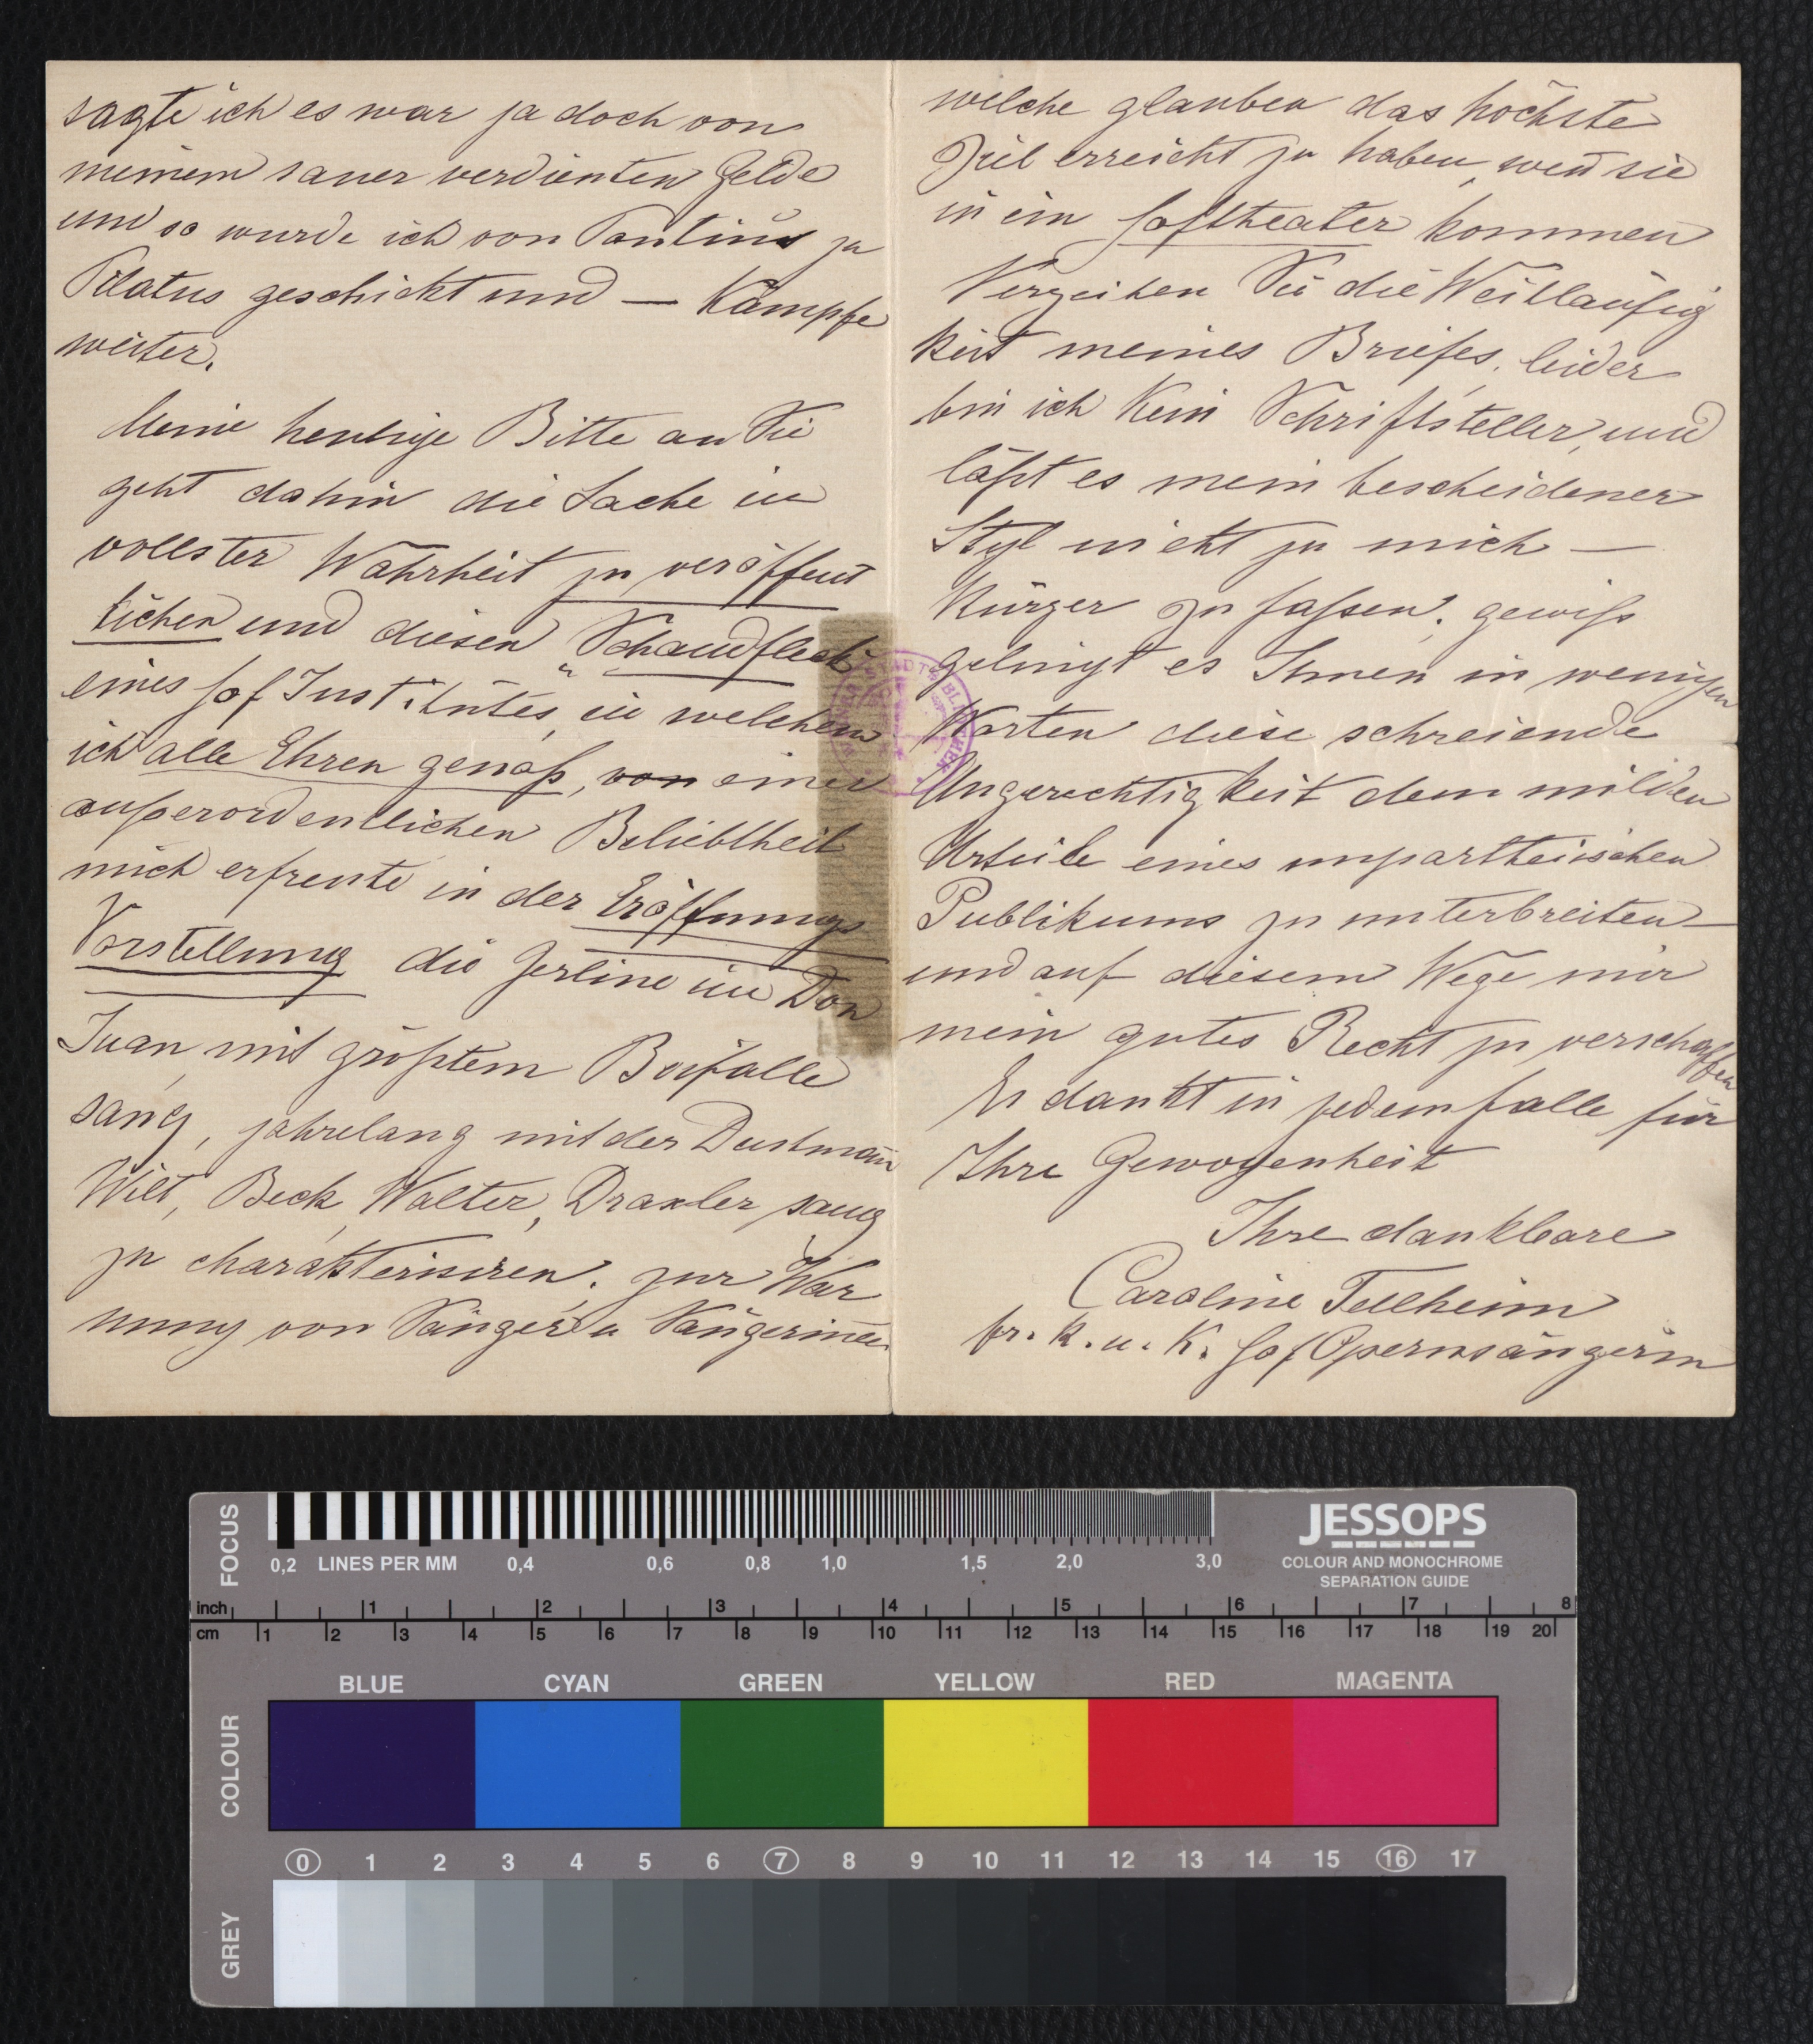 sagte ich es war ja doch von
meinem sauer verdienten Gelde
und so wurde ich von Pontius zu
Pilatus geschickt und — Kämpfe
weiter.
Meine heutige Bitte an Sie
geht dahin die Sache in
vollster Wahrheit zu veröffent
lichen und diesen "Schandfleck"
eines Hof Institutes, in welchem
ich alle Ehren genoß, von einer
außerordentlichen Beliebtheit
mich erfreute in der Eröffnungs
Vorstellung die Zerline im Don
Juan, mit größtem Beifalle
sang, jahrelang mit der Dustmañ
Wilt, Beck, Walter, Draxler, sang
zu charakterisiren, zur War
nung von Sänger u Sängeriñen
welche glauben das höchste
Ziel erreicht zu haben, weñ sie
in ein Hoftheater kommen
Verzeihen Sie die Weitläufig
keit meines Briefes, leider
bin ich Kein Schriftsteller, und
läßt es mein bescheidener
Styl nicht zu mich —
Kürzer zu faßen, gewiß
gelingt es Ihnen in wenigen
Worten diese schreiende
Ungerechtigkeit dem milden
Urteile eines unpartheiischen
Publikums zu unterbreiten —
und auf diesem Wege mir
mein gutes Recht zu verschaffen
Es dankt in jedem falle für
Ihre Gewogenheit
Ihre dankbare
Caroline Tellheim
fr. k. u. K. Hof Opernsängerin
JESSOPS
COLOUR AND MONOCHROME
SEPARATION GUIDE
FOCUS
0,2 LINES PER MM 0,4 0,6 0,8 1,0 1,5 2,0 3,0
inch 1 2 3 4 5 6 7 8
cm 1 2 3 4 5 6 7 8 9 10 11 12 13 14 15 16 17 18 19 20
BLUE CYAN GREEN YELLOW RED MAGENTA
COLOUR
0 1 2 3 4 5 6 7 8 9 10 11 12 13 14 15 16 17
GREY